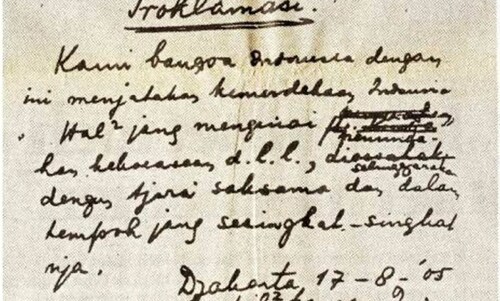 Proklamasi.
Kami bangsa Indonesia dengan
ini menjatakan kemerdekaan Indonesia
. Hal² jang mengenai
kekoeasaan d.l.l.,
selenggarakan
dengan tjara saksama dan dalam
tempoh jang sesingkat-singkat
nja.
Djakarta, 17-8-'05